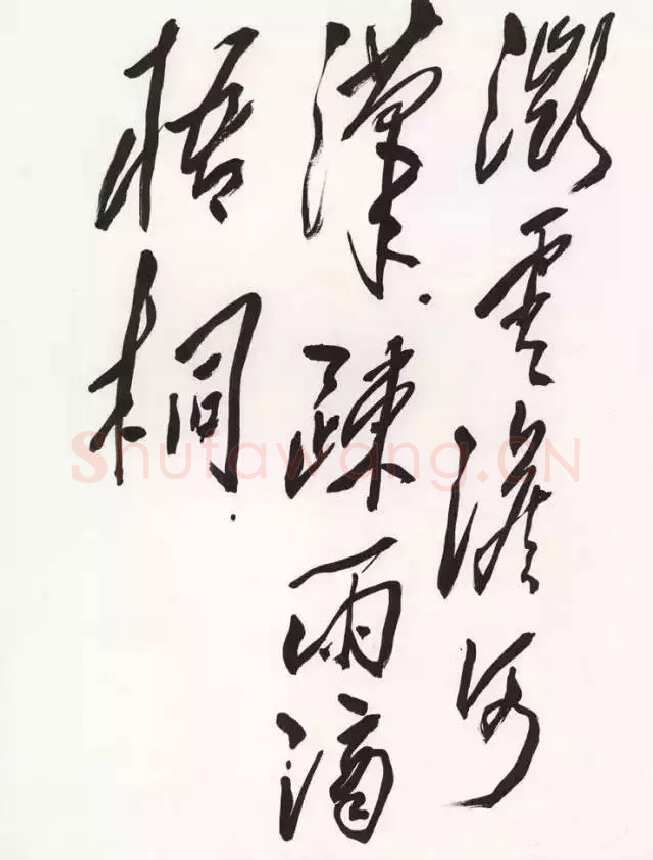 微雲澹河
漢.疎雨滴
梧桐.
Shufawang.CN